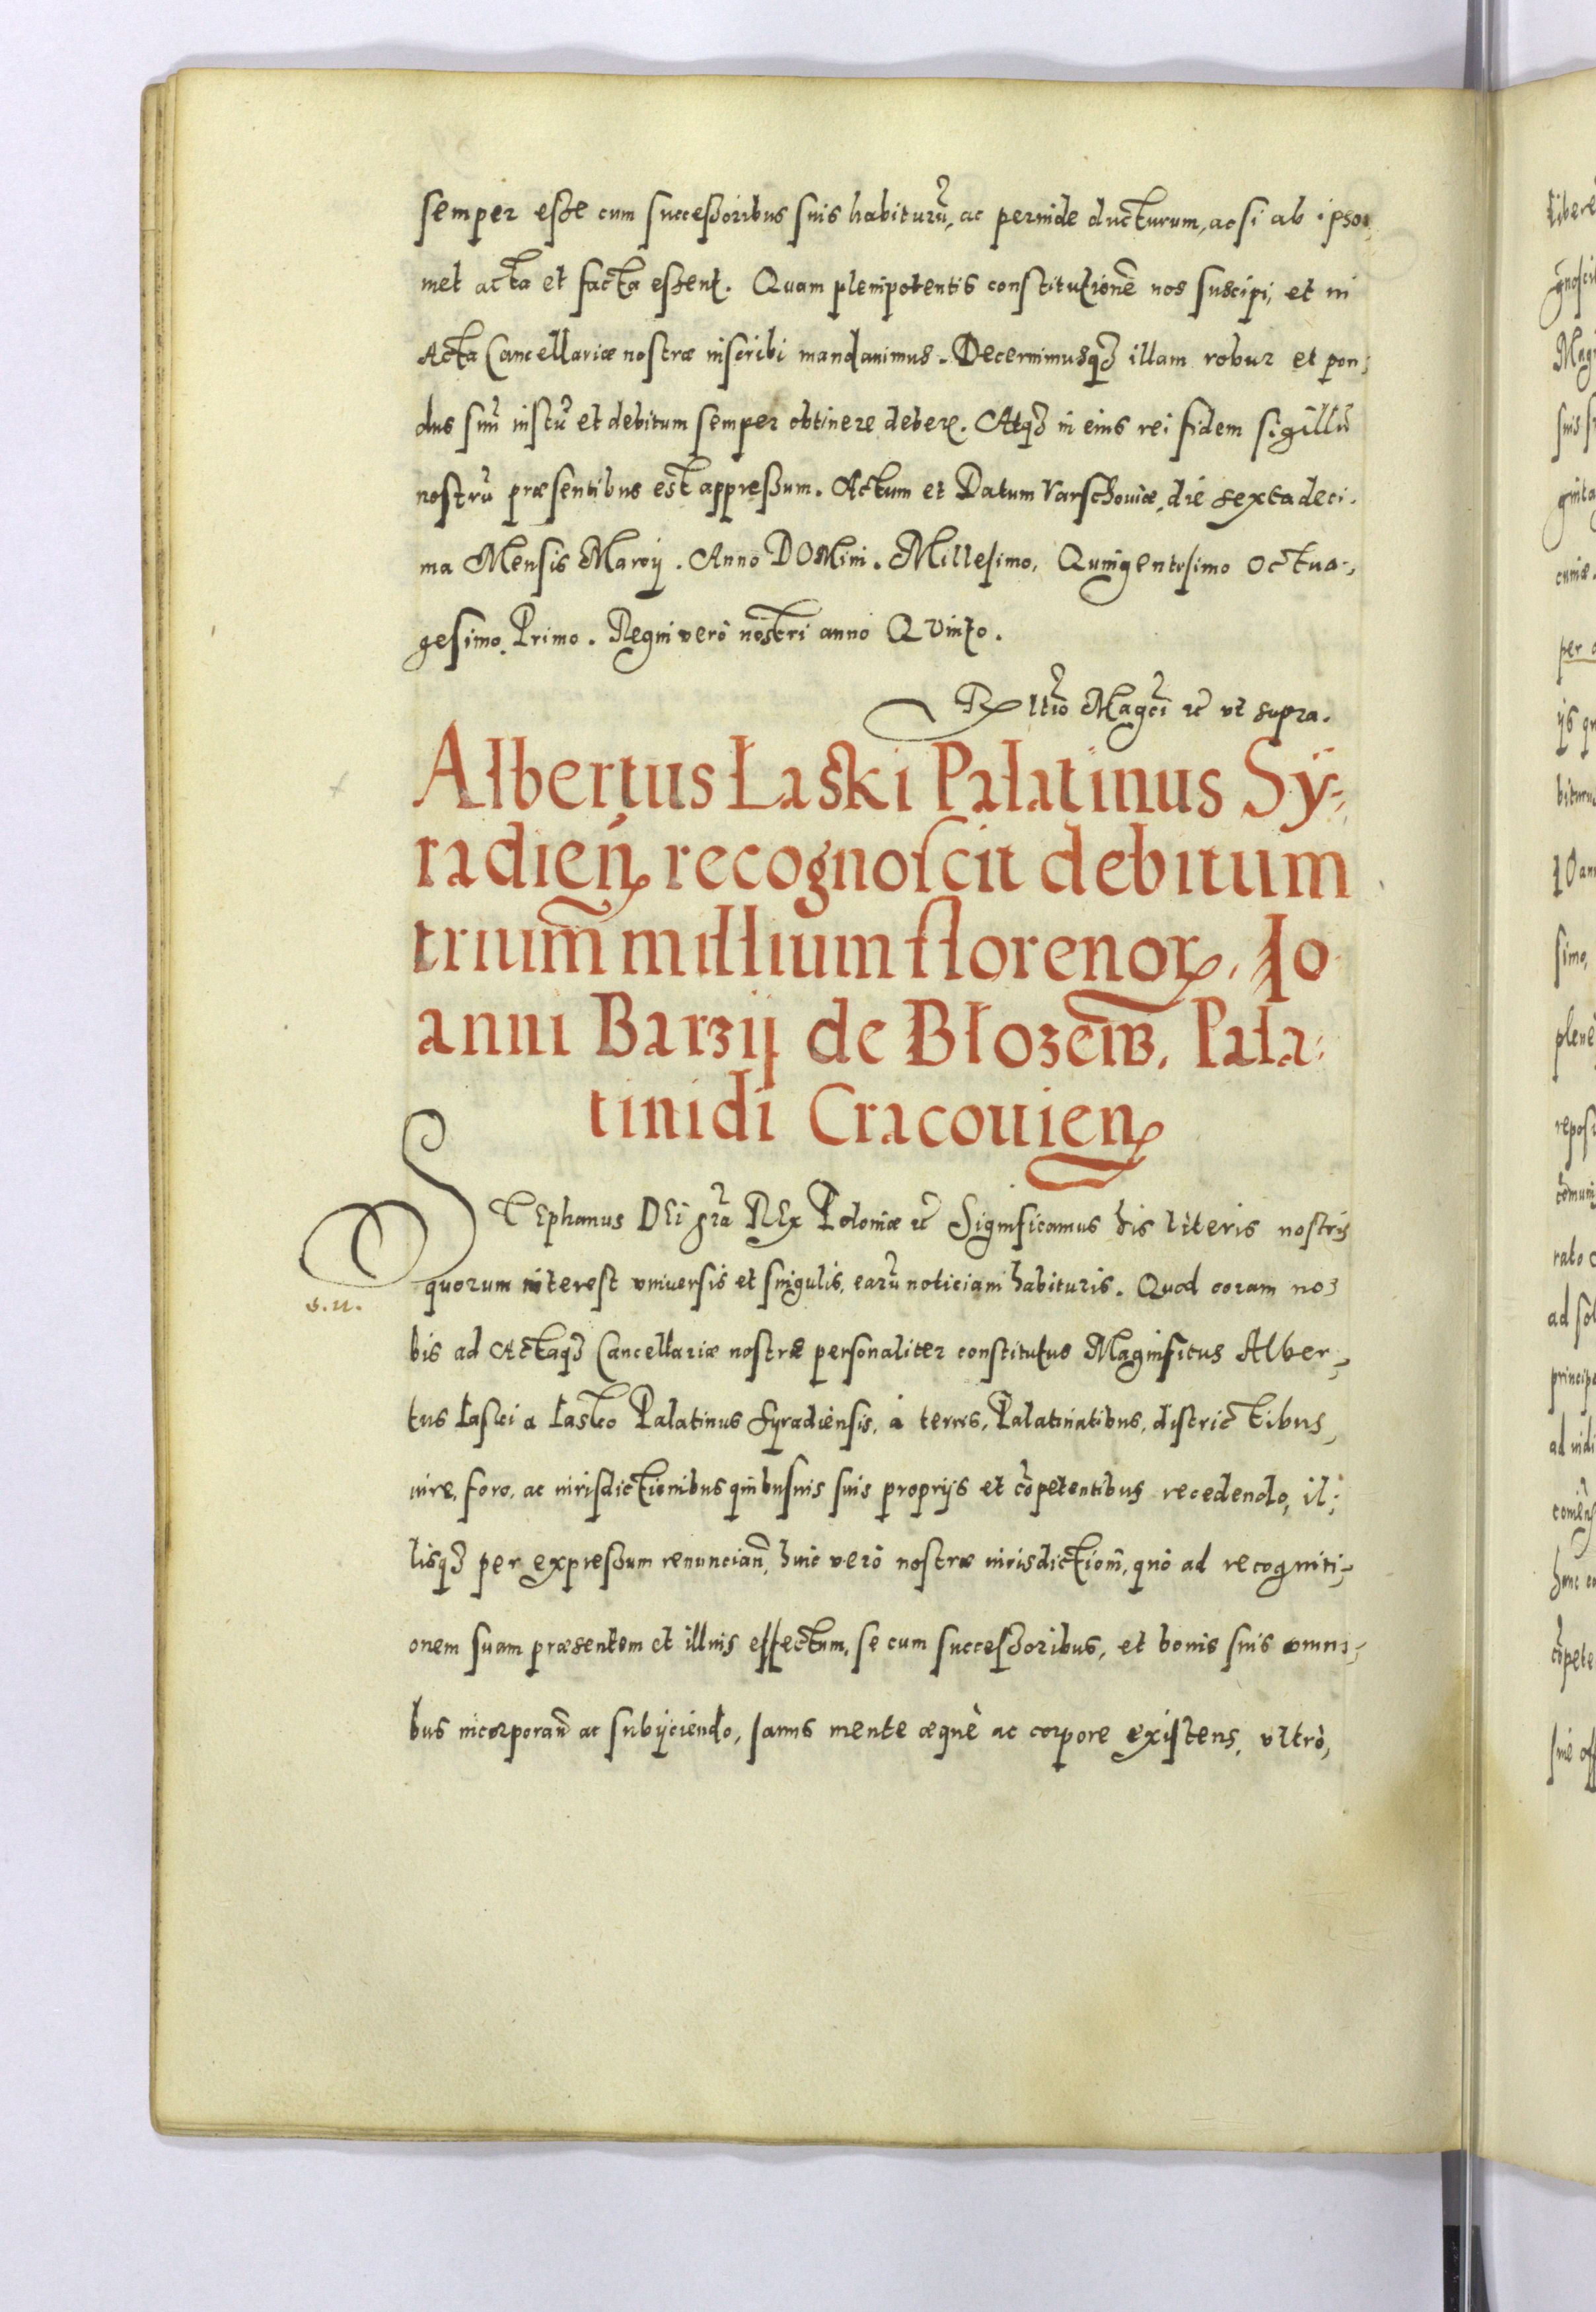 semper esse cum successoribus suis habiturũ, ac perinde ducturum, ac si ab ipso
met acta et facta essent. Quam plenipotentis constitutionẽ nos suscipi, et in
Acta Cancellariæ nostræ inscribi mandauimus. Decernimusq₃ illam robur et pon
dus suũ iustũ et debitum semper obtinere debere. Atq₃ in eius rei fidem sigillũ
nostrũ præsentibus est appressum. Actum et Datum Varschouiæ, die sextadeci
ma Mensis Marcij. Anno DOMini. Millesimo, Quingentesimo Octua
gesimo, Primo. Regni verò nostri anno QVinto.
Rltio Magci ꝛc̃ vt supra.
Albertus Łaski Pałatinus Sy-
radień recognoscit debitum
trium̃ millium florenoꝝ, Jo
anni Barzij de Błozew. Pała
tinidi Cracouien̨
STEphanus DEi gr̃a REx Poloniæ ꝛc̃ Significamus his literis nostris
quorum interest vniuersis et singulis, earũ noticiam habituris. Quod coram no
s.n.
bis ad Actaq₃ Cancellariæ nostræ personaliter constitutus Magnificus Alber-
tus Łaski a Łasko Palatinus Syradiensis, à terris, Palatinatibus, districtibus,
iure, foro, ac iurisdictionibus quibusuis suis proprijs et cõpetentibus recedendo, il
lisq₃ per expressum renunciañ, huic verò nostræ iurisdictioni, quò ad recogniti-
onem suam præsentem et illius effectum, se cum successoribus, et bonis suis omni-
bus incorporañ ac subijciendo, sanus mente æquè ac corpore existens, vltrò,